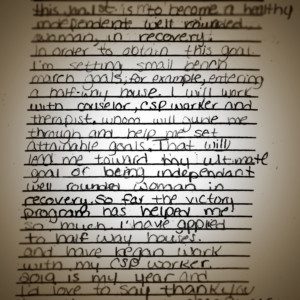 this, is to become a healthy
independent well rounded
woman, in recovery.
In order to obtain this goal
I'm setting small bench
march goals, for example, entering
a half-way house. I will work
with counselor, CSP worker and
therapist. whom will guide me
through and help me set
attainable goals. That will
lead me toward my ultimate
goal of being independant
well rounded woman in
recovery. So far the victory
program has helped me
so much. I have applied
to half way houses.
and have began work
with my CSP worker.
my year and
I'd love to say thankyou